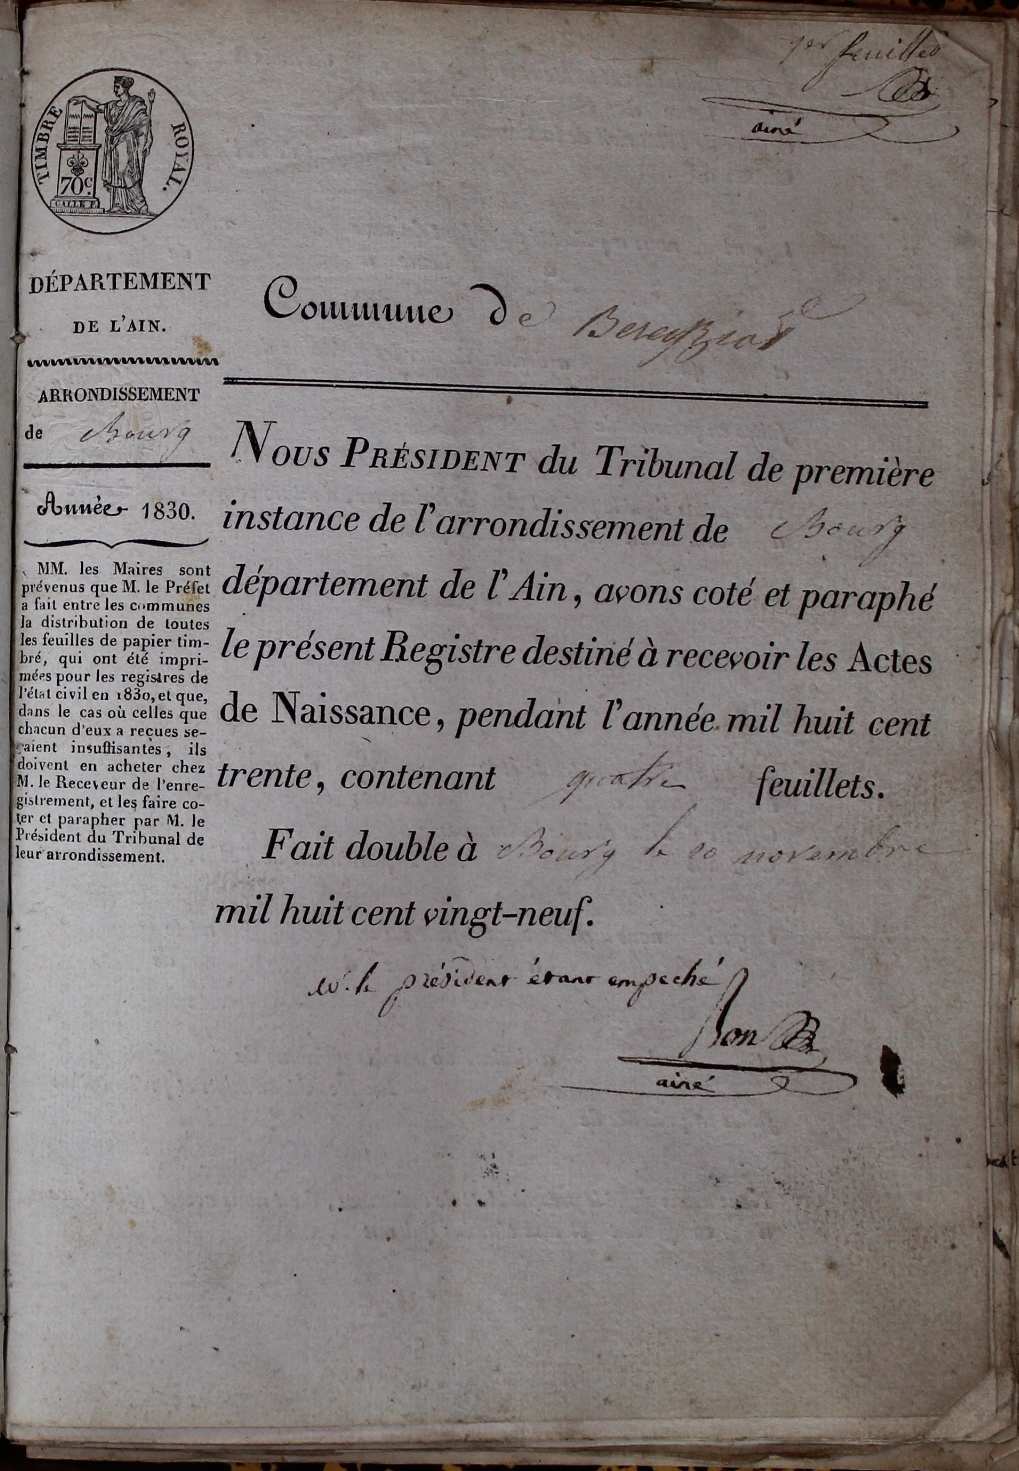 1er feuillet
ainé
TIMBRE ROYAL.
70c.
DÉPARTEMENT
DE L'AIN.
ARRONDISSEMENT
de Bourg
Année 1830.
MM. les Maires sont
prévenus que M. le Préfet
a fait entre les communes
la distribution de toutes
les feuilles de papier tim-
bré, qui ont été impri-
mées pour les registres de
l'état civil en 1830, et que,
dans le cas où celles que
chacun d'eux a reçues se-
raient insuffisantes, ils
doivent en acheter chez
M. le Receveur de l'enre-
gistrement, et les faire co-
ter et parapher par M. le
Président du Tribunal de
leur arrondissement.
Commune de Bereyziat
NOUS PRÉSIDENT du Tribunal de première
instance de l'arrondissement de Bourg
département de l'Ain, avons coté et paraphé
le présent Registre destiné à recevoir les Actes
de Naissance, pendant l'année mil huit cent
trente, contenant quatre feuillets.
Fait double à Bourg le 20 novembre
mil huit cent vingt-neuf.
M. le président étant empeché
Bon
ainé